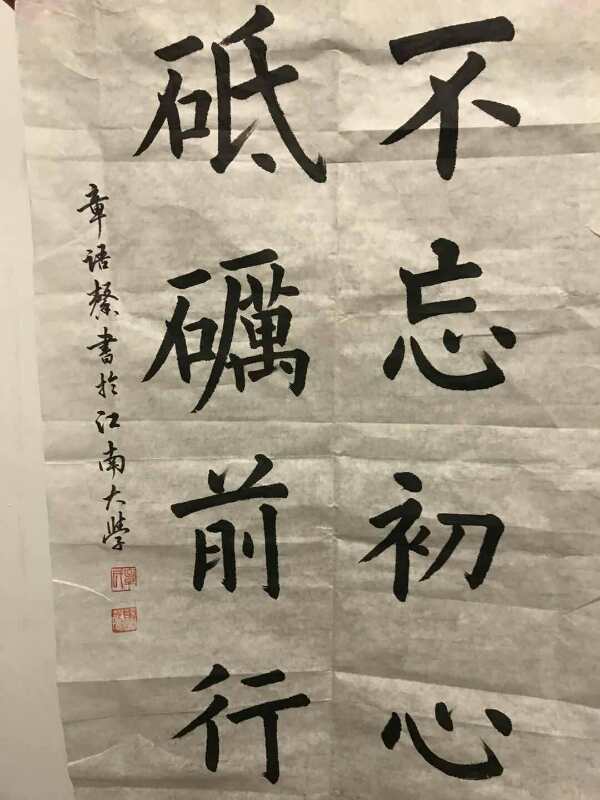 不忘初心
砥礪前行
章语馨書於江南大學